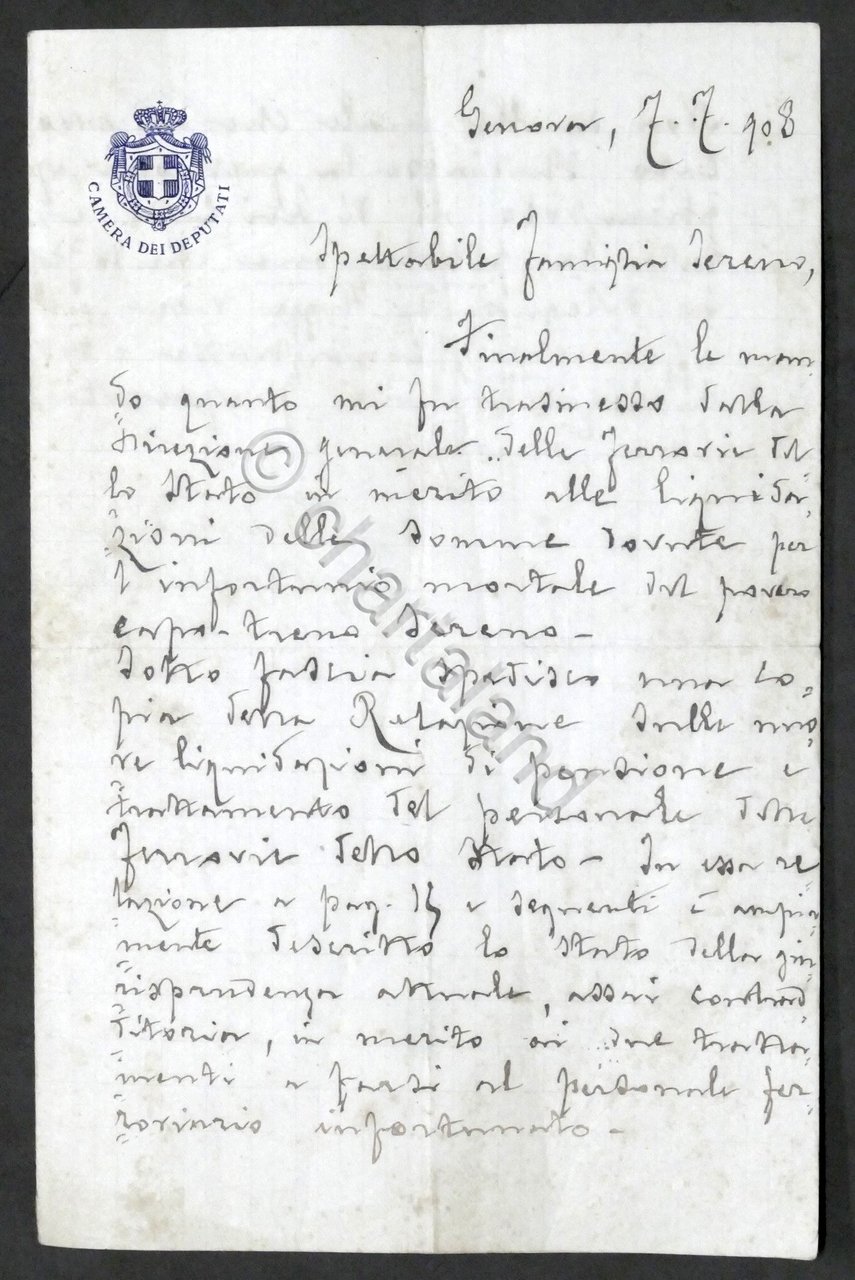 CAMERA DEI DEPUTATI
Genova, 7. 7. 908
Spettabile Famiglia Sereno,
Finalmente le man=
do quanto mi fu trasmesso dalla
Direzione generale delle Ferrovie del
lo Stato in merito alle liquida=
zioni delle somme dovute per
l'infortunio mortale del povero
capo-treno Sereno -
Sotto fascia spedisco una co=
pia della Relazione sulle nuo
ve liquidazioni di pensione e
trattamento del personale delle
Ferrovie dello Stato - In essa re
lazione a pag. 15 e seguenti è ampia=
mente descritto lo stato della giu=
risprudenza attuale, assai contrad=
ditoria, in merito ai due tratta=
menti a farsi al personale fer=
roviario infortunato -
© chartaland